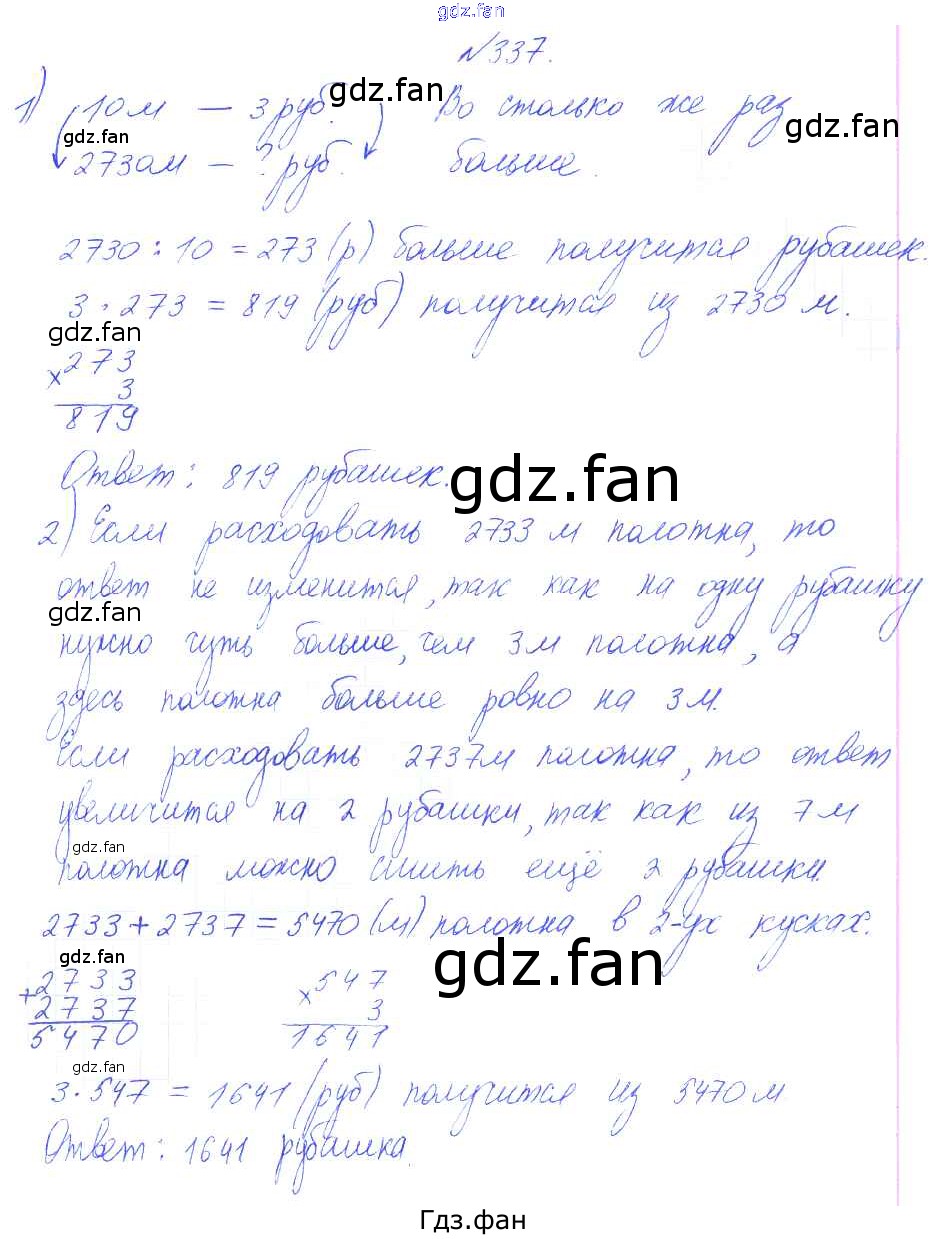 gdz.fan
№337.
1) 10м — 3 руб. Во столько же раз
gdz.fan gdz.fan gdz.fan
2730м — ? руб. больше.
2730 : 10 = 273 (р) больше получится рубашек.
3 · 273 = 819 (руб) получится из 2730 м.
gdz.fan gdz.fan
× 273
3
819
Ответ: 819 рубашек.
gdz.fan
2) Если расходовать 2733 м полотна, то
ответ не изменится, так как на одну рубашку
gdz.fan
нужно чуть больше, чем 3м полотна, а
здесь полотна больше ровно на 3м.
Если расходовать 2737м полотна, то ответ
увеличится на 2 рубашки, так как из 7м
gdz.fan
полотна можно сшить ещё 2 рубашки.
2733 + 2737 = 5470 (м) полотна в 2-ух кусках.
gdz.fan gdz.fan
+ 2733 × 547
2737 3
5470 1641
gdz.fan
3 · 547 = 1641 (руб) получится из 5470м
Ответ: 1641 рубашка.
Гдз.фан